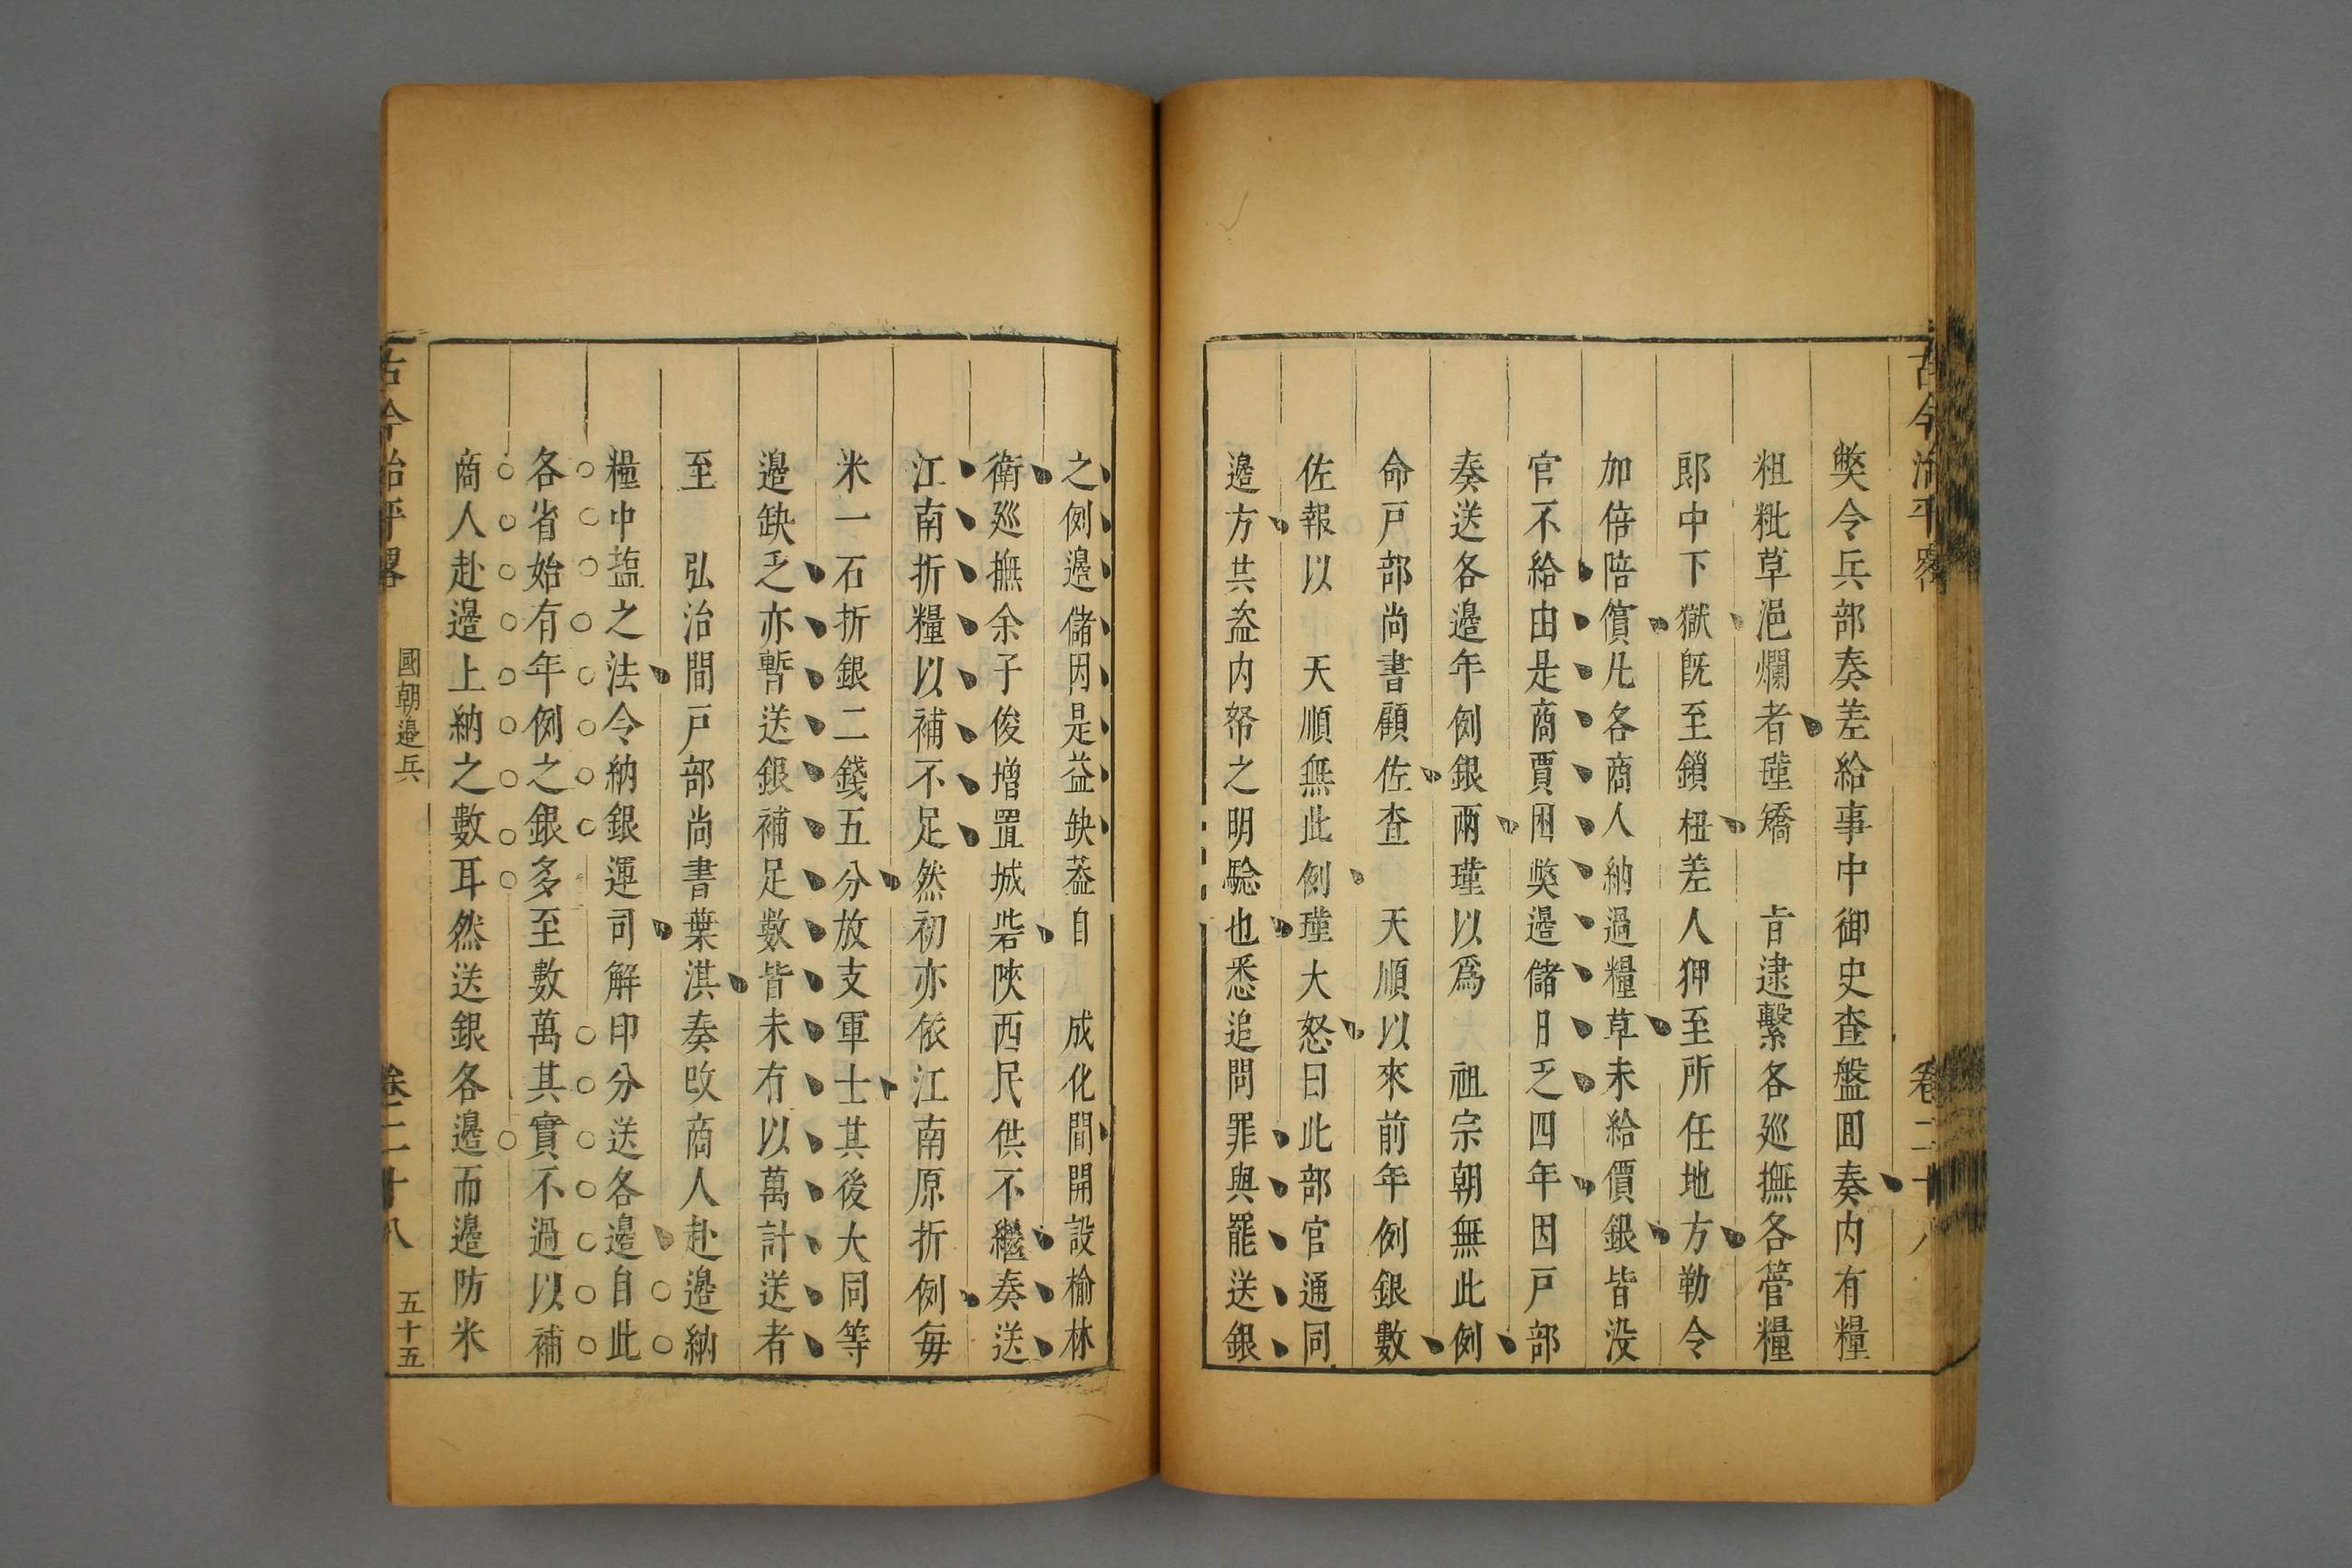 古今治平畧 卷二十八
獘令兵部奏差給事中御史查盤囬奏内有糧
粗粃草浥爛者瑾矯 旨逮繫各廵撫各管糧
郎中下獄旣至鎖杻差人狎至所任地方勒令
加倍陪償凡各商人納過糧草未給價銀皆没
官不給由是商賈困獘邉儲日乏四年因戸部
奏送各邉年例銀兩瑾以爲 祖宗朝無此例
命戸部尚書顧佐查 天順以來前年例銀數
佐報以 天順無此例瑾大怒曰此部官通同
邉方共盗内帑之明騐也悉追問罪與罷送銀
之例邉儲因是益缺葢自 成化間開設榆林
衛廵撫余子俊增置城砦陜西民供不繼奏送
江南折糧以補不足然初亦依江南原折例每
米一石折銀二錢五分放支軍士其後大同等
邉缺乏亦暫送銀補足數皆未有以萬計送者
至 弘治間戸部尚書葉淇奏攺商人赴邉納
糧中塩之法令納銀運司解印分送各邉自此
各省始有年例之銀多至數萬其實不過以補
商人赴邉上納之數耳然送銀各邉而邉防米
古今治平畧 國朝邉兵 卷二十八 五十五